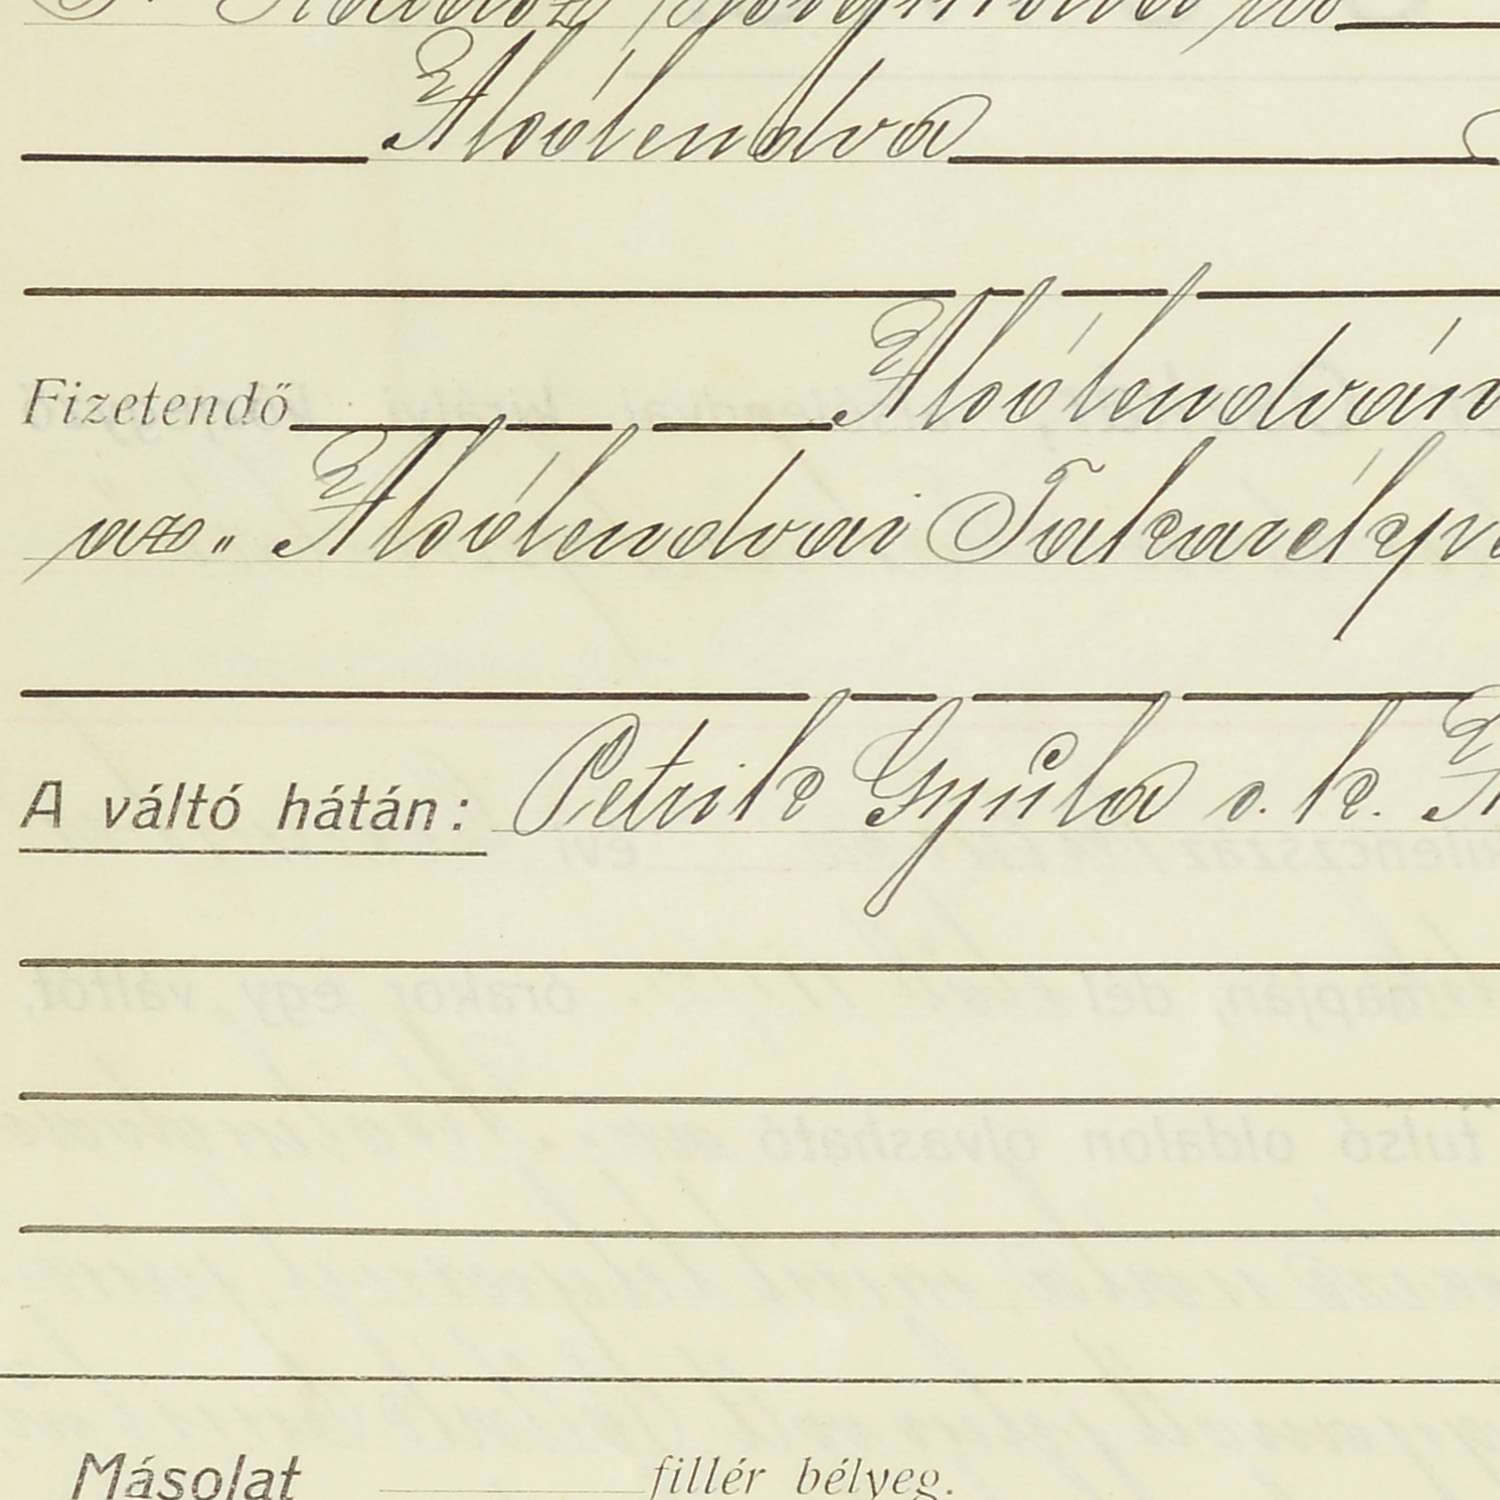 Alsólendva
Fizetendő Alsólendván
az „Alsólendvai Takarékp
A váltó hátán: Petrik Gyula s. k.
Másolat fillér bélyeg.